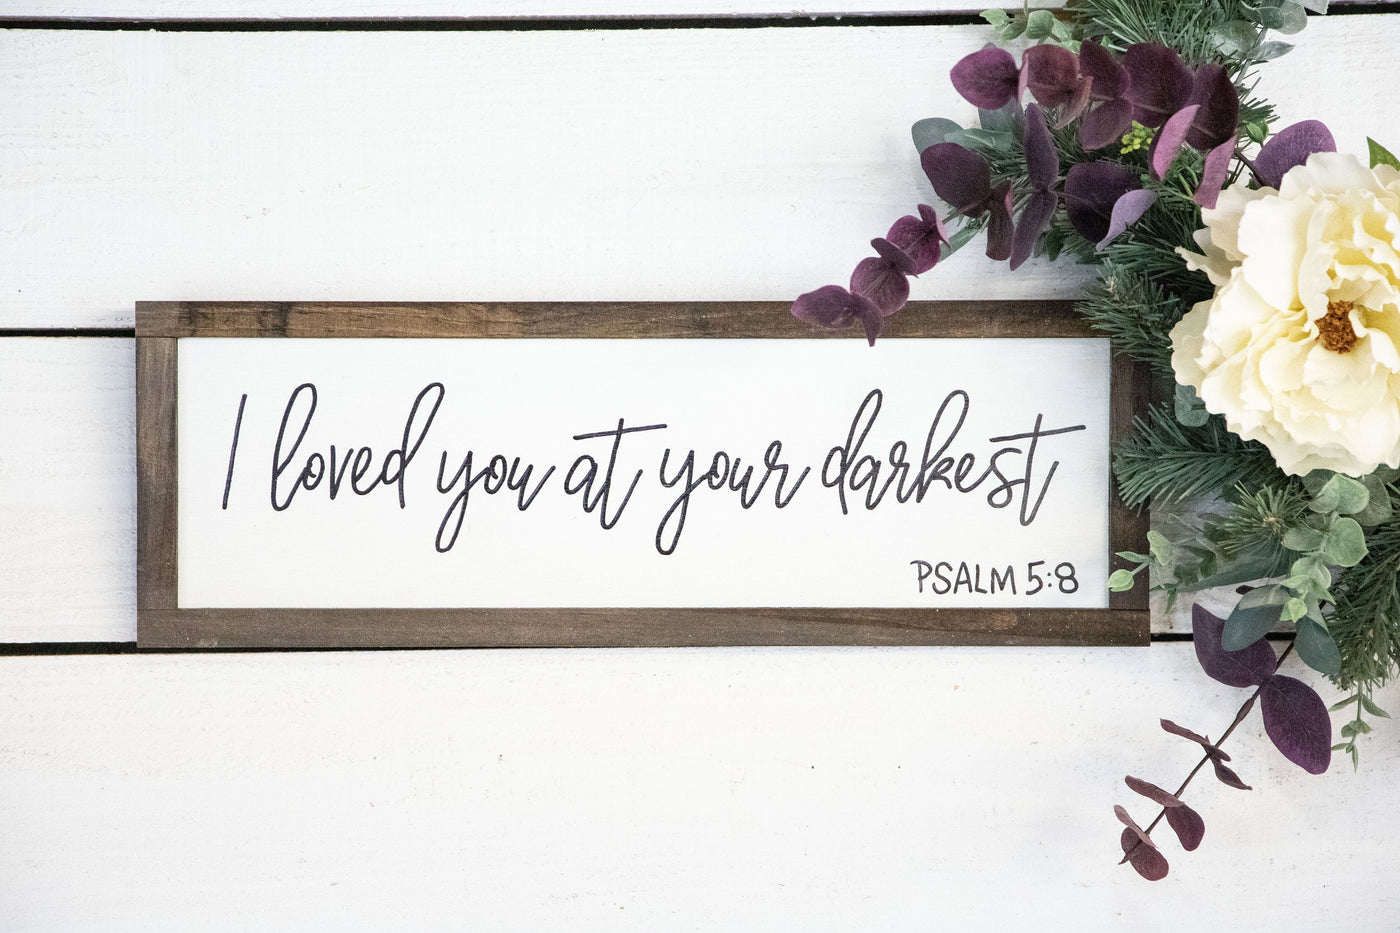 I loved you at your darkest
PSALM 5:8